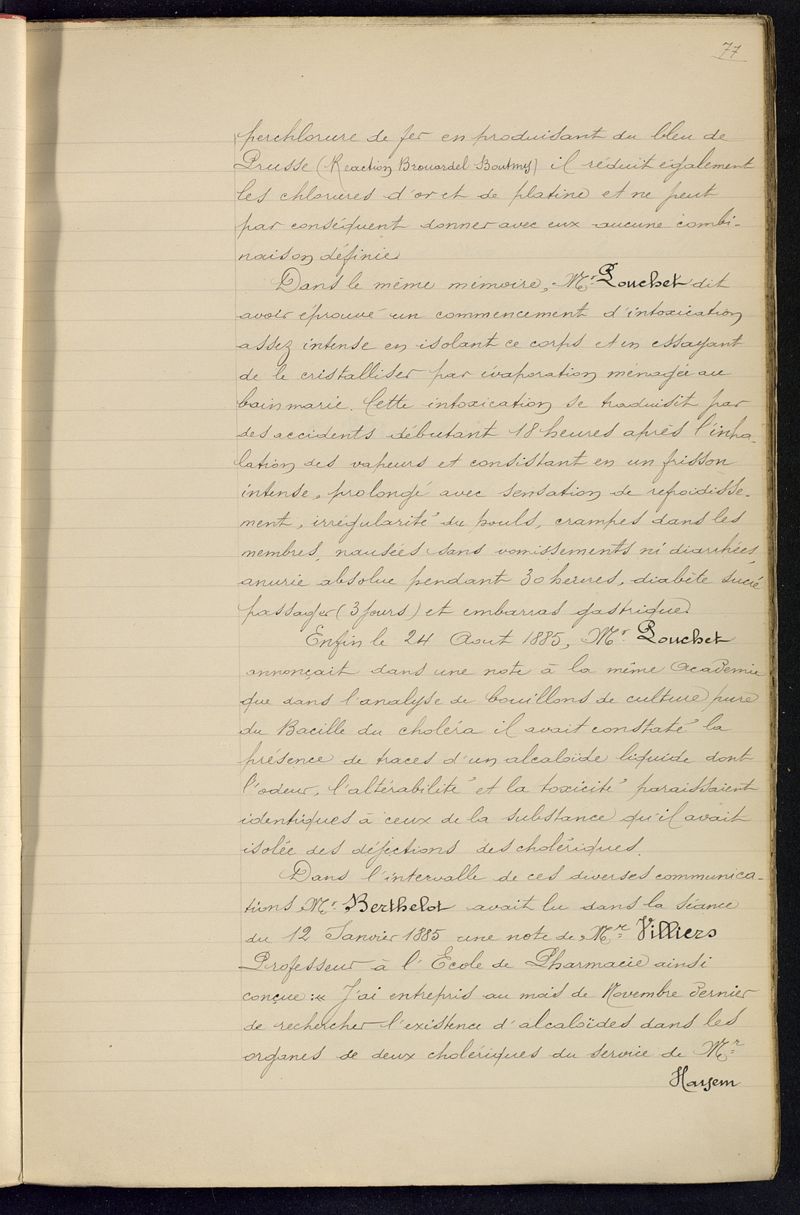 77
perchlorure de fer en produisant du bleu de
Prusse (Reaction Brouardel Boutmy) il réduit également
les chlorures d'or et de platine et ne peut
par conséquent donner avec eux aucune combi-
naison définie
Dans le même mémoire, Mr. Pouchet dit
avoir éprouvé un commencement d'intoxication
assez intense en isolant ce corps et en essayant
de le cristalliser par évaporation menagée au
bain marie. Cette intoxication se traduisit par
des accidents débutant 18 heures après l'inha-
lation des vapeurs et consistant en un frisson
intense, prolongé avec sensation de refroidisse-
ment, irrégularité du pouls, crampes dans les
membres, nausées sans vomissements ni diarrhées,
anurie absolue pendant 30 heures, diabète sucré
passager (3 jours) et embarras gastrique.
Enfin le 24 Aout 1885, Mr. Pouchet
annonçait dans une note à la même Academie
que dans l'analyse de bouillons de culture pure
du Bacille du choléra il avait constaté la
présence de traces d'un alcaloïde liquide dont
l'odeur, l'altérabilité et la toxicité paraissaient
identiques à ceux de la substance qu'il avait
isolée des déjections des cholériques.
Dans l'intervalle de ces diverses communica-
tions Mr. Berthelot avait lu dans la séance
du 12 Janvier 1885 une note de Mr. Villiers
Professeur à l'Ecole de Pharmacie ainsi
conçue: « J'ai entrepris au mois de Novembre dernier
de rechercher l'existence d'alcaloïdes dans les
organes de deux cholériques du service de Mr.
Hayem